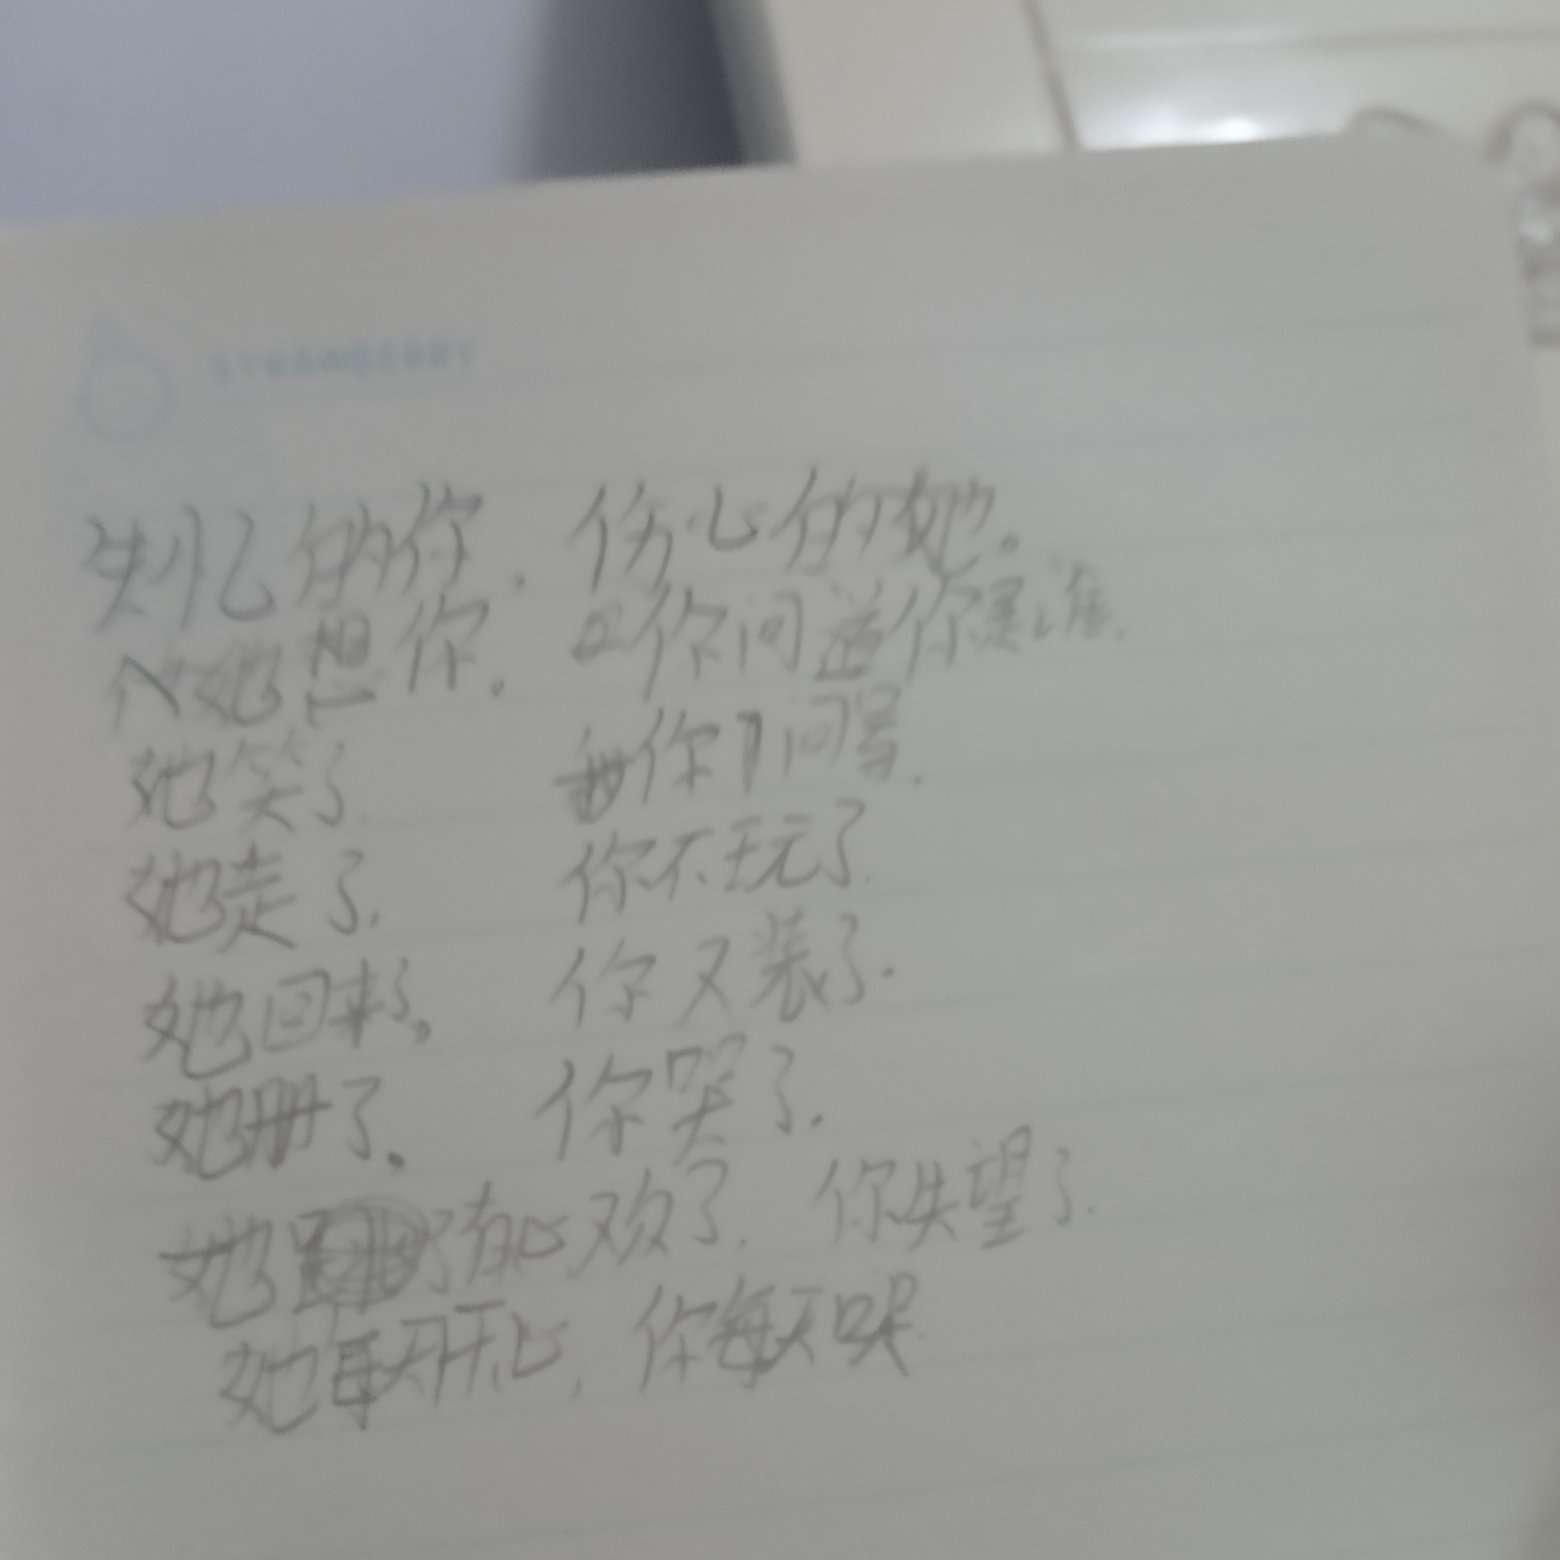 STRAWBERRY
失忆的你，伤心的她。
她想你。 你问道你是谁。
她笑了 你 问号。
她走了， 你不玩了。
她回来了。 你又装了。
她册了。 你哭了。
她 有心欢了，你失望了。
她 开心，你每天哭